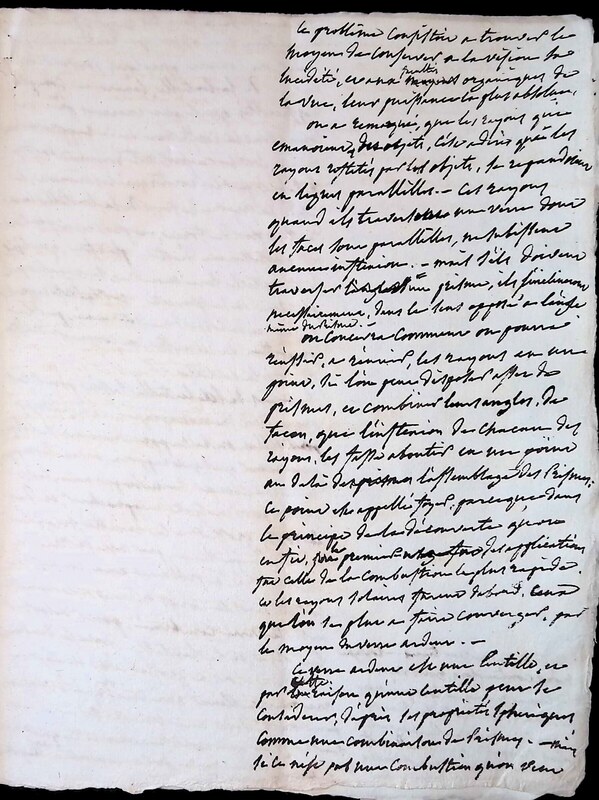 Le problême consistoit a trouver le
moyen de conserver a la vision sa
lucidité, et aux facultés organiques de
la vue, leur puissance la plus absolue.
on a remarqué, que les rayons qui
emanoient des objets, c'est a dire que les
rayons reflétés par les objets, se repandoient
en lignes paralleles. — Ces rayons
quand ils traversent une verre dont
les faces sont paralleles, ne subissent
aucune inflexion. — mais s'ils doivent
traverser un prisme, ils s'inclineront
necessairement, dans le sens opposé a l'angle
même du Prisme. —
on concevra comment on pourra
réussir, a réunir, les rayons en un
point, si l'on peut disposer assez de
prismes, et combiner leurs angles, de
facon, que l'inflexion de chacun des
rayons, les fasse aboutir en un point
au dela de l'assemblage des Prismes;
ce point est appellé foyer, parceque, dans
le principe de la découverte qu'on
en fit, la premiere des applications
fut celle de la combustion la plus rapide.
et les rayons solaires furent d'abord, ceux
que l'on se plut a faire converger, par
le moyen du verre ardent. —
Ce verre ardent est une Lentille, et
par cette raison qu'une lentille peut se
considerer, d'après ses proprietés spheriques
comme une combinaison de Prismes. — mais
si ce n'est pas une combustion qu'on veut